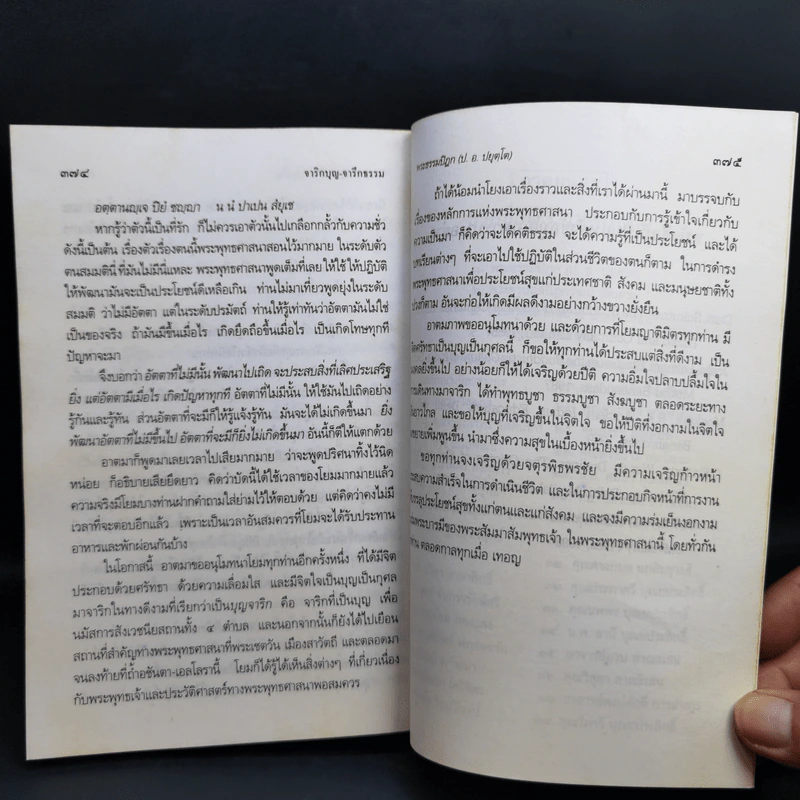 ๓๗๔ จาริกบุญ-จารึกธรรม
อตฺตานญฺเจ ปิยํ ชญฺญา น นํ ปาเปน สํยุเช
หากรู้ว่าตัวนี้เป็นที่รัก ก็ไม่ควรเอาตัวนั้นไปเกลือกกลั้วกับความชั่ว
ดังนี้เป็นต้น เรื่องตัวเรื่องตนนี้พระพุทธศาสนาสอนไว้มากมาย ในระดับตัว
ตนสมมตินี้ ที่มันไม่มีนี่แหละ พระพุทธศาสนาพูดเต็มที่เลย ให้ใช้ ให้ปฏิบัติ
ให้พัฒนามันจะเป็นประโยชน์ดีเหลือเกิน ท่านไม่มาเที่ยวพูดยุ่งในระดับ
สมมติ ว่าไม่มีอัตตา แต่ในระดับปรมัตถ์ ท่านให้รู้เท่าทันว่าอัตตามันไม่ใช่
เป็นของจริง ถ้ามันมีขึ้นเมื่อไร เกิดยึดถือขึ้นเมื่อไร เป็นเกิดโทษทุกที
ปัญหาจะมา
จึงบอกว่า อัตตาที่ไม่มีนั้น พัฒนาไปเถิด จะประสบสิ่งที่เลิศประเสริฐ
ยิ่ง แต่อัตตามีเมื่อไร เกิดปัญหาทุกที อัตตาที่ไม่มีนั้น ให้ใช้มันไปเถิดอย่าง
รู้กันและรู้ทัน ส่วนอัตตาที่จะมีก็ให้รู้แจ้งรู้ทัน มันจะได้ไม่เกิดขึ้นมา ยิ่ง
พัฒนาอัตตาที่ไม่มีขึ้นไป อัตตาที่จะมีก็ยิ่งไม่เกิดขึ้นมา อันนี้ก็ตีให้แตกด้วย
อาตมาก็พูดมาเลยเวลาไปเสียมากมาย ว่าจะพูดปริศนาทิ้งไว้นิด
หน่อย ก็อธิบายเสียยืดยาว คิดว่าบัดนี้ได้ใช้เวลาของโยมมากมายแล้ว
ความจริงมีโยมบางท่านฝากคำถามใส่ย่ามไว้ให้ตอบด้วย แต่คิดว่าคงไม่มี
เวลาที่จะตอบอีกแล้ว เพราะเป็นเวลาอันสมควรที่โยมจะได้รับประทาน
อาหารและพักผ่อนกันบ้าง
ในโอกาสนี้ อาตมาขออนุโมทนาโยมทุกท่านอีกครั้งหนึ่ง ที่ได้มีจิต
ประกอบด้วยศรัทธา ด้วยความเลื่อมใส และมีจิตใจเป็นบุญเป็นกุศล
มาจาริกในทางดีงามที่เรียกว่าเป็นบุญจาริก คือ จาริกที่เป็นบุญ เพื่อ
นมัสการสังเวชนียสถานทั้ง ๔ ตำบล และนอกจากนั้นก็ยังได้ไปเยือน
สถานที่สำคัญทางพระพุทธศาสนาที่พระเชตวัน เมืองสาวัตถี และตลอดมา
จนลงท้ายที่ถ้ำอชันตา-เอลโลรานี้ โยมก็ได้รู้ได้เห็นสิ่งต่างๆ ที่เกี่ยวเนื่อง
กับพระพุทธเจ้าและประวัติศาสตร์ทางพระพุทธศาสนาพอสมควร
พระธรรมปิฎก (ป. อ. ปยุตฺโต) ๓๗๕
ถ้าได้น้อมนำโยงเอาเรื่องราวและสิ่งที่เราได้ผ่านมานี้ มาบรรจบกับ
เรื่องของหลักการแห่งพระพุทธศาสนา ประกอบกับการรู้เข้าใจเกี่ยวกับ
ความเป็นมา ก็คิดว่าจะได้คติธรรม จะได้ความรู้ที่เป็นประโยชน์ และได้
บทเรียนต่างๆ ที่จะเอาไปใช้ปฏิบัติในส่วนชีวิตของตนก็ตาม ในการดำรง
พระพุทธศาสนาเพื่อประโยชน์สุขแก่ประเทศชาติ สังคม และมนุษยชาติทั้ง
ปวงก็ตาม อันจะก่อให้เกิดมีผลดีงามอย่างกว้างขวางยั่งยืน
อาตมภาพขออนุโมทนาด้วย และด้วยการที่โยมญาติมิตรทุกท่าน มี
จิตศรัทธาเป็นบุญเป็นกุศลนี้ ก็ขอให้ทุกท่านได้ประสบแต่สิ่งที่ดีงาม เป็น
มงคลยิ่งขึ้นไป อย่างน้อยก็ให้ได้เจริญด้วยปีติ ความอิ่มใจปลาบปลื้มใจใน
การเดินทางมาจาริก ได้ทำพุทธบูชา ธรรมบูชา สังฆบูชา ตลอดระยะทาง
อันยาวไกล และขอให้บุญที่เจริญขึ้นในจิตใจ ขอให้ปีติที่งอกงามในจิตใจ
ขยายเพิ่มพูนขึ้น นำมาซึ่งความสุขในเบื้องหน้ายิ่งขึ้นไป
ขอทุกท่านจงเจริญด้วยจตุรพิธพรชัย มีความเจริญก้าวหน้า
ประสบความสำเร็จในการดำเนินชีวิต และในการประกอบกิจหน้าที่การงาน
บรรลุประโยชน์สุขทั้งแก่ตนและแก่สังคม และจงมีความร่มเย็นงอกงาม
พระบารมีของพระสัมมาสัมพุทธเจ้า ในพระพุทธศาสนานี้ โดยทั่วกัน
ตลอดกาลทุกเมื่อ เทอญ